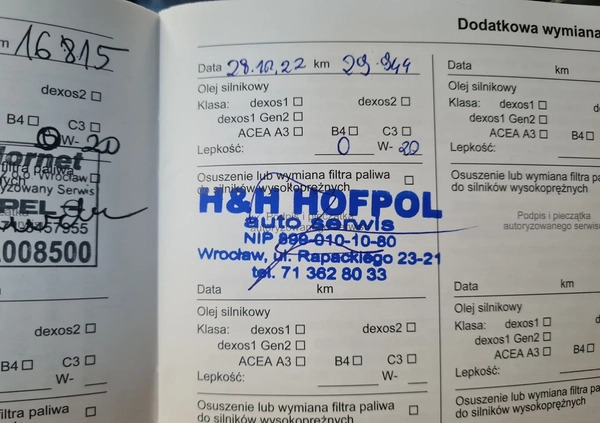 m 16815
dexos2 ☐
B4 ☐ C3 ☐
0 W- 20
filtra paliwa
Wrocław
Serwis
OPEL
1008500
dexos2 ☐
B4 ☐ C3 ☐
W-
filtra paliwa
Data 28.10.22 km 29.944
Olej silnikowy
Klasa: dexos1 ☐ dexos2 ☐
dexos1 Gen2 ☐
ACEA A3 ☐ B4 ☐ C3 ☐
Lepkość: 0 W- 20
Osuszenie lub wymiana filtra paliwa ☐
do silników wysokoprężnych
H&H HOFPOL
Podpis i pieczątka
auto serwis
NIP 899-010-10-80
Wrocław, ul. Rapackiego 23-21
tel. 71 362 80 33
Data km
Olej silnikowy
Klasa: dexos1 ☐ dexos2 ☐
dexos1 Gen2 ☐
ACEA A3 ☐ B4 ☐ C3 ☐
Lepkość: W-
Osuszenie lub wymiana filtra paliwa ☐
do silników wysokoprężnych
Dodatkowa wymiana
Data km
Olej silnikowy
Klasa: dexos1 ☐
dexos1 Gen2 ☐
ACEA A3 ☐ B4
Lepkość:
Osuszenie lub wymiana filtra
do silników wysokoprężnych
Podpis i pieczątka
autoryzowanego serwisu
Data km
Olej silnikowy
Klasa: dexos1 ☐
dexos1 Gen2 ☐
ACEA A3 ☐ B4
Lepkość:
Osuszenie lub wymiana filtra
do silników wysokoprężnych